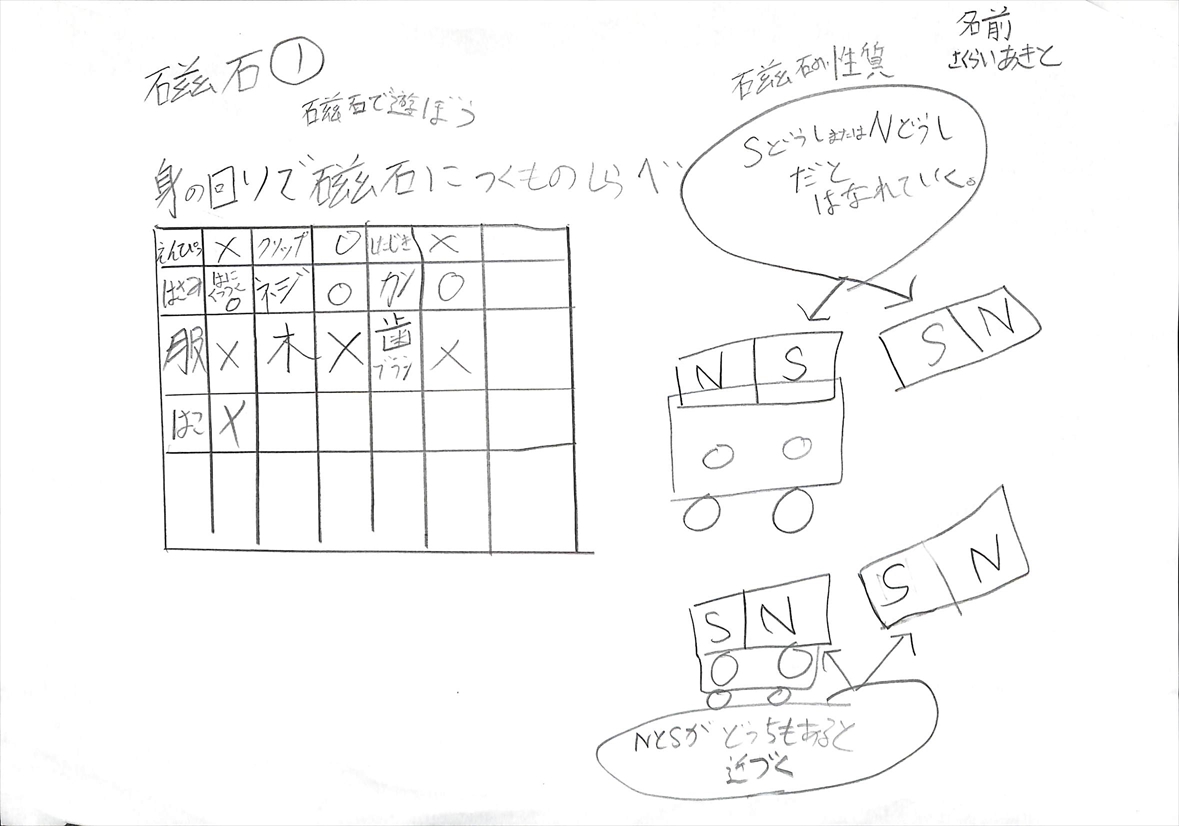 磁石①
磁石で遊ぼう
身の回りで磁石につくものしらべ
えんぴつ × クリップ ○ したじき ×
はさみ はにくっつく○ ネジ ○ カン ○
服 × 木 × 歯ブラシ ×
はこ ×
名前
さくらいあきと
磁石の性質
SどうしまたはNどうし
だと
はなれていく。
N S
S N
S N
S N
NとSがどっちもあると
近づく